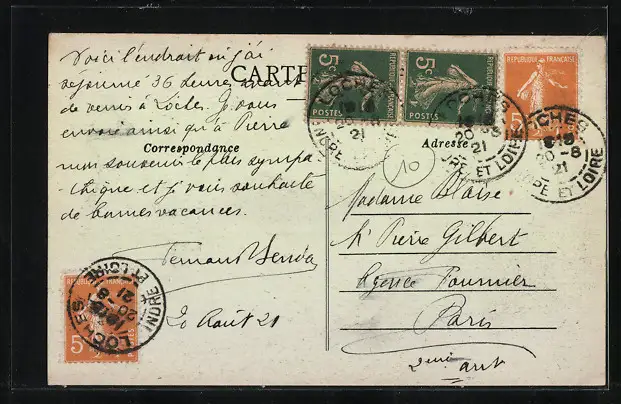 Voici l'endroit où j'ai
séjourné 36 heures avant
de venir à Loches. Je vous
envoie ainsi qu'à Pierre
mon souvenir le plus sympa-
thique et je vous souhaite
de bonnes vacances.
20 Août 21
CARTE
Correspondance
Adresse
10
Madame Blaise
Pierre Gilbert
Agence Fournier
Paris
2ème arrt
5c
REPUBLIQUE FRANÇAISE
POSTES
5c
REPUBLIQUE FRANÇAISE
POSTES
REPUBLIQUE FRANÇAISE
5
LOCHES
20-8
21
INDRE ET LOIRE
LOCHES
20-8
21
INDRE ET LOIRE
LOCHES
18
20-8
21
INDRE ET LOIRE
REPUBLIQUE FRANÇAISE
5
LOCHES
20-8
21
INDRE ET LOIRE